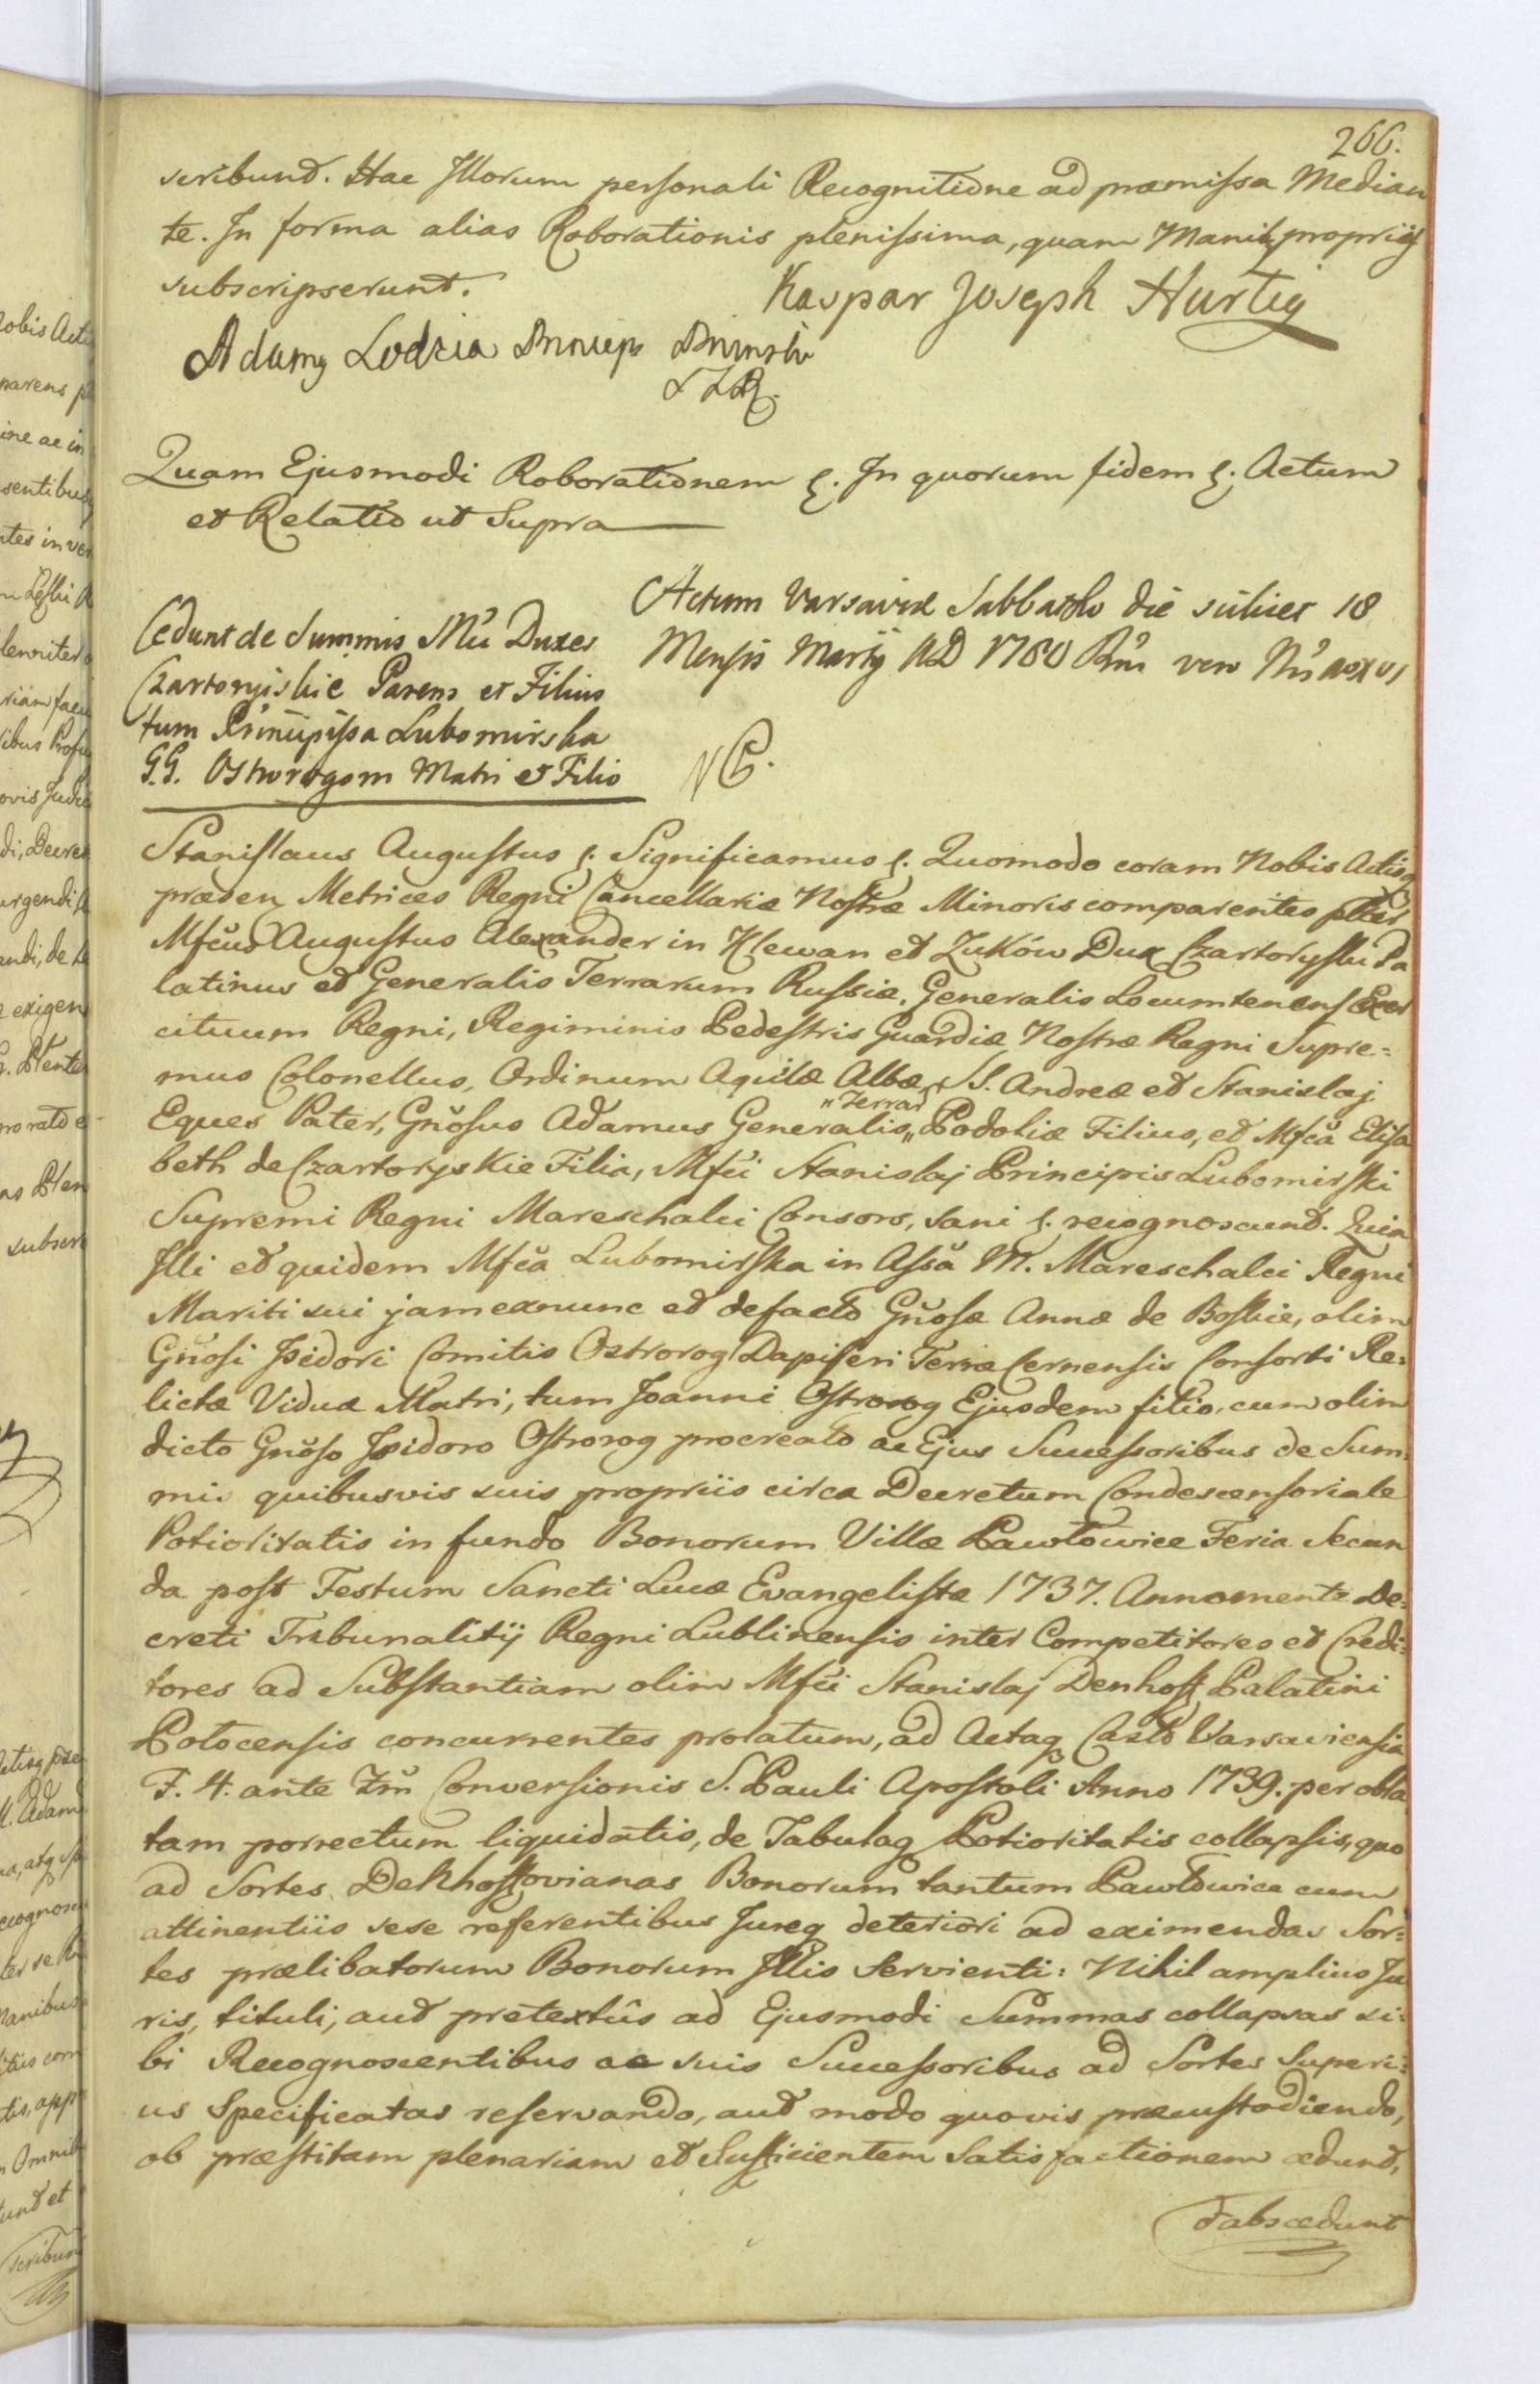 266.
scribunt. Hac Illorum personali Recognitione ad præmissa Median
te. In forma alias Roborationis plenissima, quam Manibq propriis
subscripserunt.
Kaspar Joseph Hurtig
Adamq Lodzia Princeps
Quam Ejusmodi Roborationem &. In quorum fidem &. Actum
et Relatio ut Supra
Cedunt de Summis Mci Duxes
Czartoryiskie Parens et Filius
tum Principissa Lubomirska
G.G. Ostrorogom Matri et Filio
Actum Varsaviæ Sabbatho die scilicet 18
Mensis Martij AD 1780 vero
Stanislaus Augustus &. Significamus &. Quomodo coram Nobis Actisq
præsen Metrices Regni Cancellariæ Nostræ Minoris comparentes plter
Mfcus Augustus Alexander in Klewan et Zuków Dux Czartoryski Pa
latinus et Generalis Terrarum Russiæ, Generalis Locumtenens Exer
cituum Regni, Regiminis Pedestris Guardiæ Nostræ Regni Supre=
mus Colonellus, Ordinum Aquilæ Albæ, SS. Andreæ et Stanislaj
Eques Pater, Gnosus Adamus Generalis „Terrar„ Podoliæ Filius, et Mfca Elisa
beth de Czartoryskie Filia, Mfci Stanislaj Principis Lubomirski
Supremi Regni Mareschalci Consors, sani &. recognoscunt. Quia
Illi et quidem Mfca Lubomirska in Assa M. Mareschalci Regni
Mariti sui jam exnunc et de facto Gnosæ Annæ de Boskie, olim
Gnosi Isidori Comitis Ostrorog Dapiferi Terræ Cernensis Consorti Re=
lictæ Viduæ Matri, tum Joanni Ostrorog Ejusdem filio, cum olim
dicto Gnoso Isidoro Ostrorog procreato ac Ejus Successoribus de Sum=
mis quibusvis suis propriis circa Decretum Condescensoriale
Potioritatis in fundo Bonorum Villæ Pawłowice Feria Secun
da post Festum Sancti Lucæ Evangelistæ 1737. Anno mente De=
creti Tribunalitij Regni Lublinensis inter Competitores et Credi=
tores ad Substantiam olim Mfci Stanislaj Denhoff Palatini
Polocensis concurrentes prolatum, ad Actaq Castr Varsaviensia
F. 4. ante Fm Conversionis S. Pauli Apostoli Anno 1739. per obla
tam porrectum liquidatis, de Tabulaq Potioritatis collapsis, quo
ad Sortes Dekhoffovianas Bonorum tantum Pawłowice cum
attinentiis sese referentibus Jureq deteriori ad eximendas Sor=
tes prælibatorum Bonorum Illis Servienti: Nihil amplius Ju
ris, tituli, aut pretextûs ad Ejusmodi Summas collapsas si=
bi Recognoscentibus ac suis Successoribus ad Sortes Superi=
us Specificatas reservando, aut modo quovis præcustodiendo,
ob præstitam plenariam et Sufficientem Satisfactionem cedunt,
et abscedunt